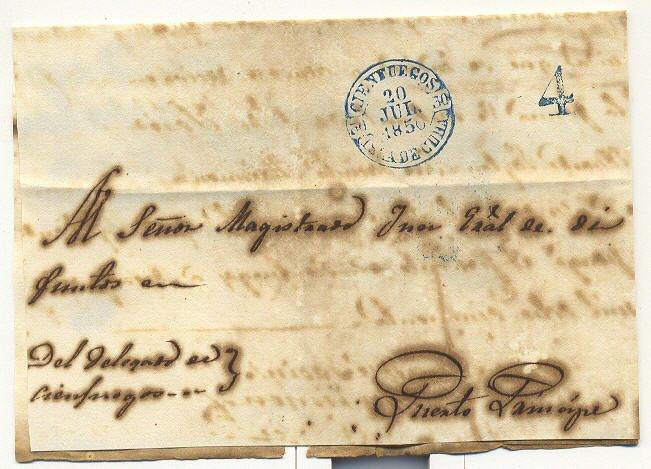 CIENFUEGOS
20
JUL
1850
ISLA DE CUBA
4
Al Señor Magistrado Juez Gral de. di
funtos en
Del delegado de
cienfuegos
Puerto Principe